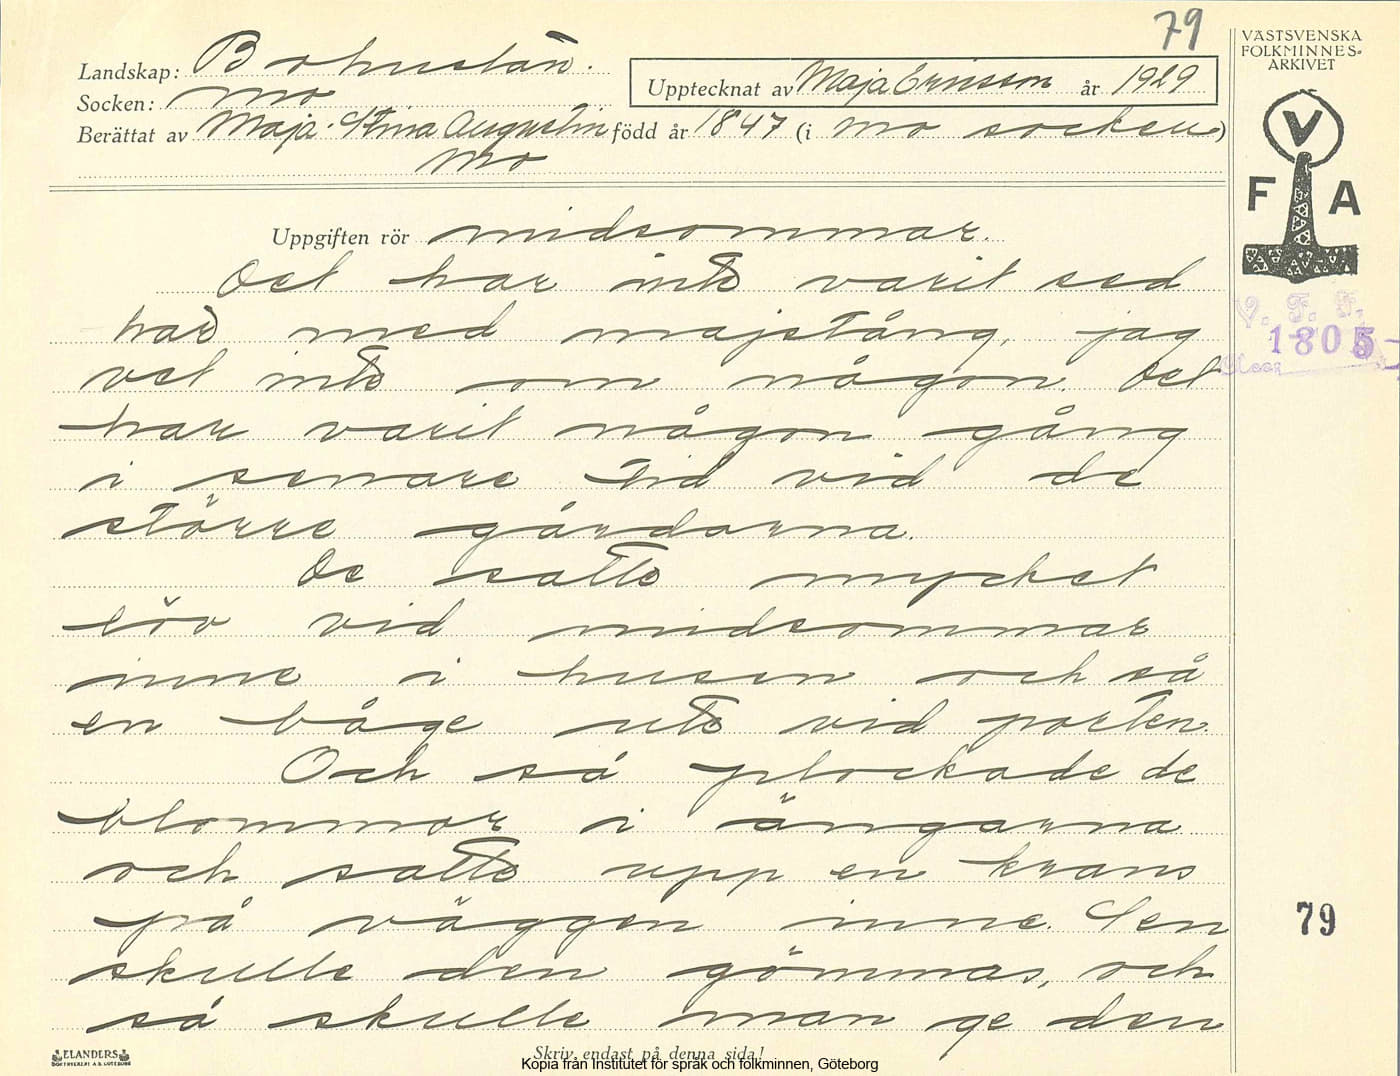 79
Landskap: Bohuslän.
Socken: Mo
Upptecknat av Maja Ericsson år 1929
Berättat av Maja-Stina Augustin född år 1847 (i Mo socken)
Mo
VÄSTSVENSKA
FOLKMINNES-
ARKIVET
V
F A
V. F. F.
1805
Uppgiften rör midsommar.
Det har inte varit sed
här med majstång, jag
vet inte om någon. Det
har varit någon gång
i senare tid vid de
större gårdarna.
De satte mycket
löv vid midsommar
inne i husen och så
en båge ute vid porten.
Och så plockade de
blommor i ängarna
och satte upp en krans
på väggen inne. Sen
skulle den gömmas, och
så skulle man ge den
79
ELANDERS
BOKTRYCKERI A.B. GÖTEBORG
Skriv endast på denna sida!
Kopia från Institutet för språk och folkminnen, Göteborg